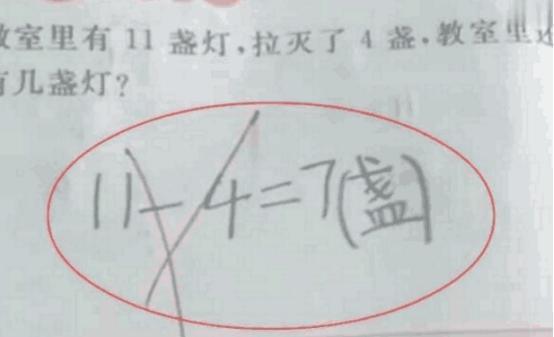 教室里有 11 盏灯,拉灭了 4 盏,教室里还
有几盏灯?
11-4=7(盏)